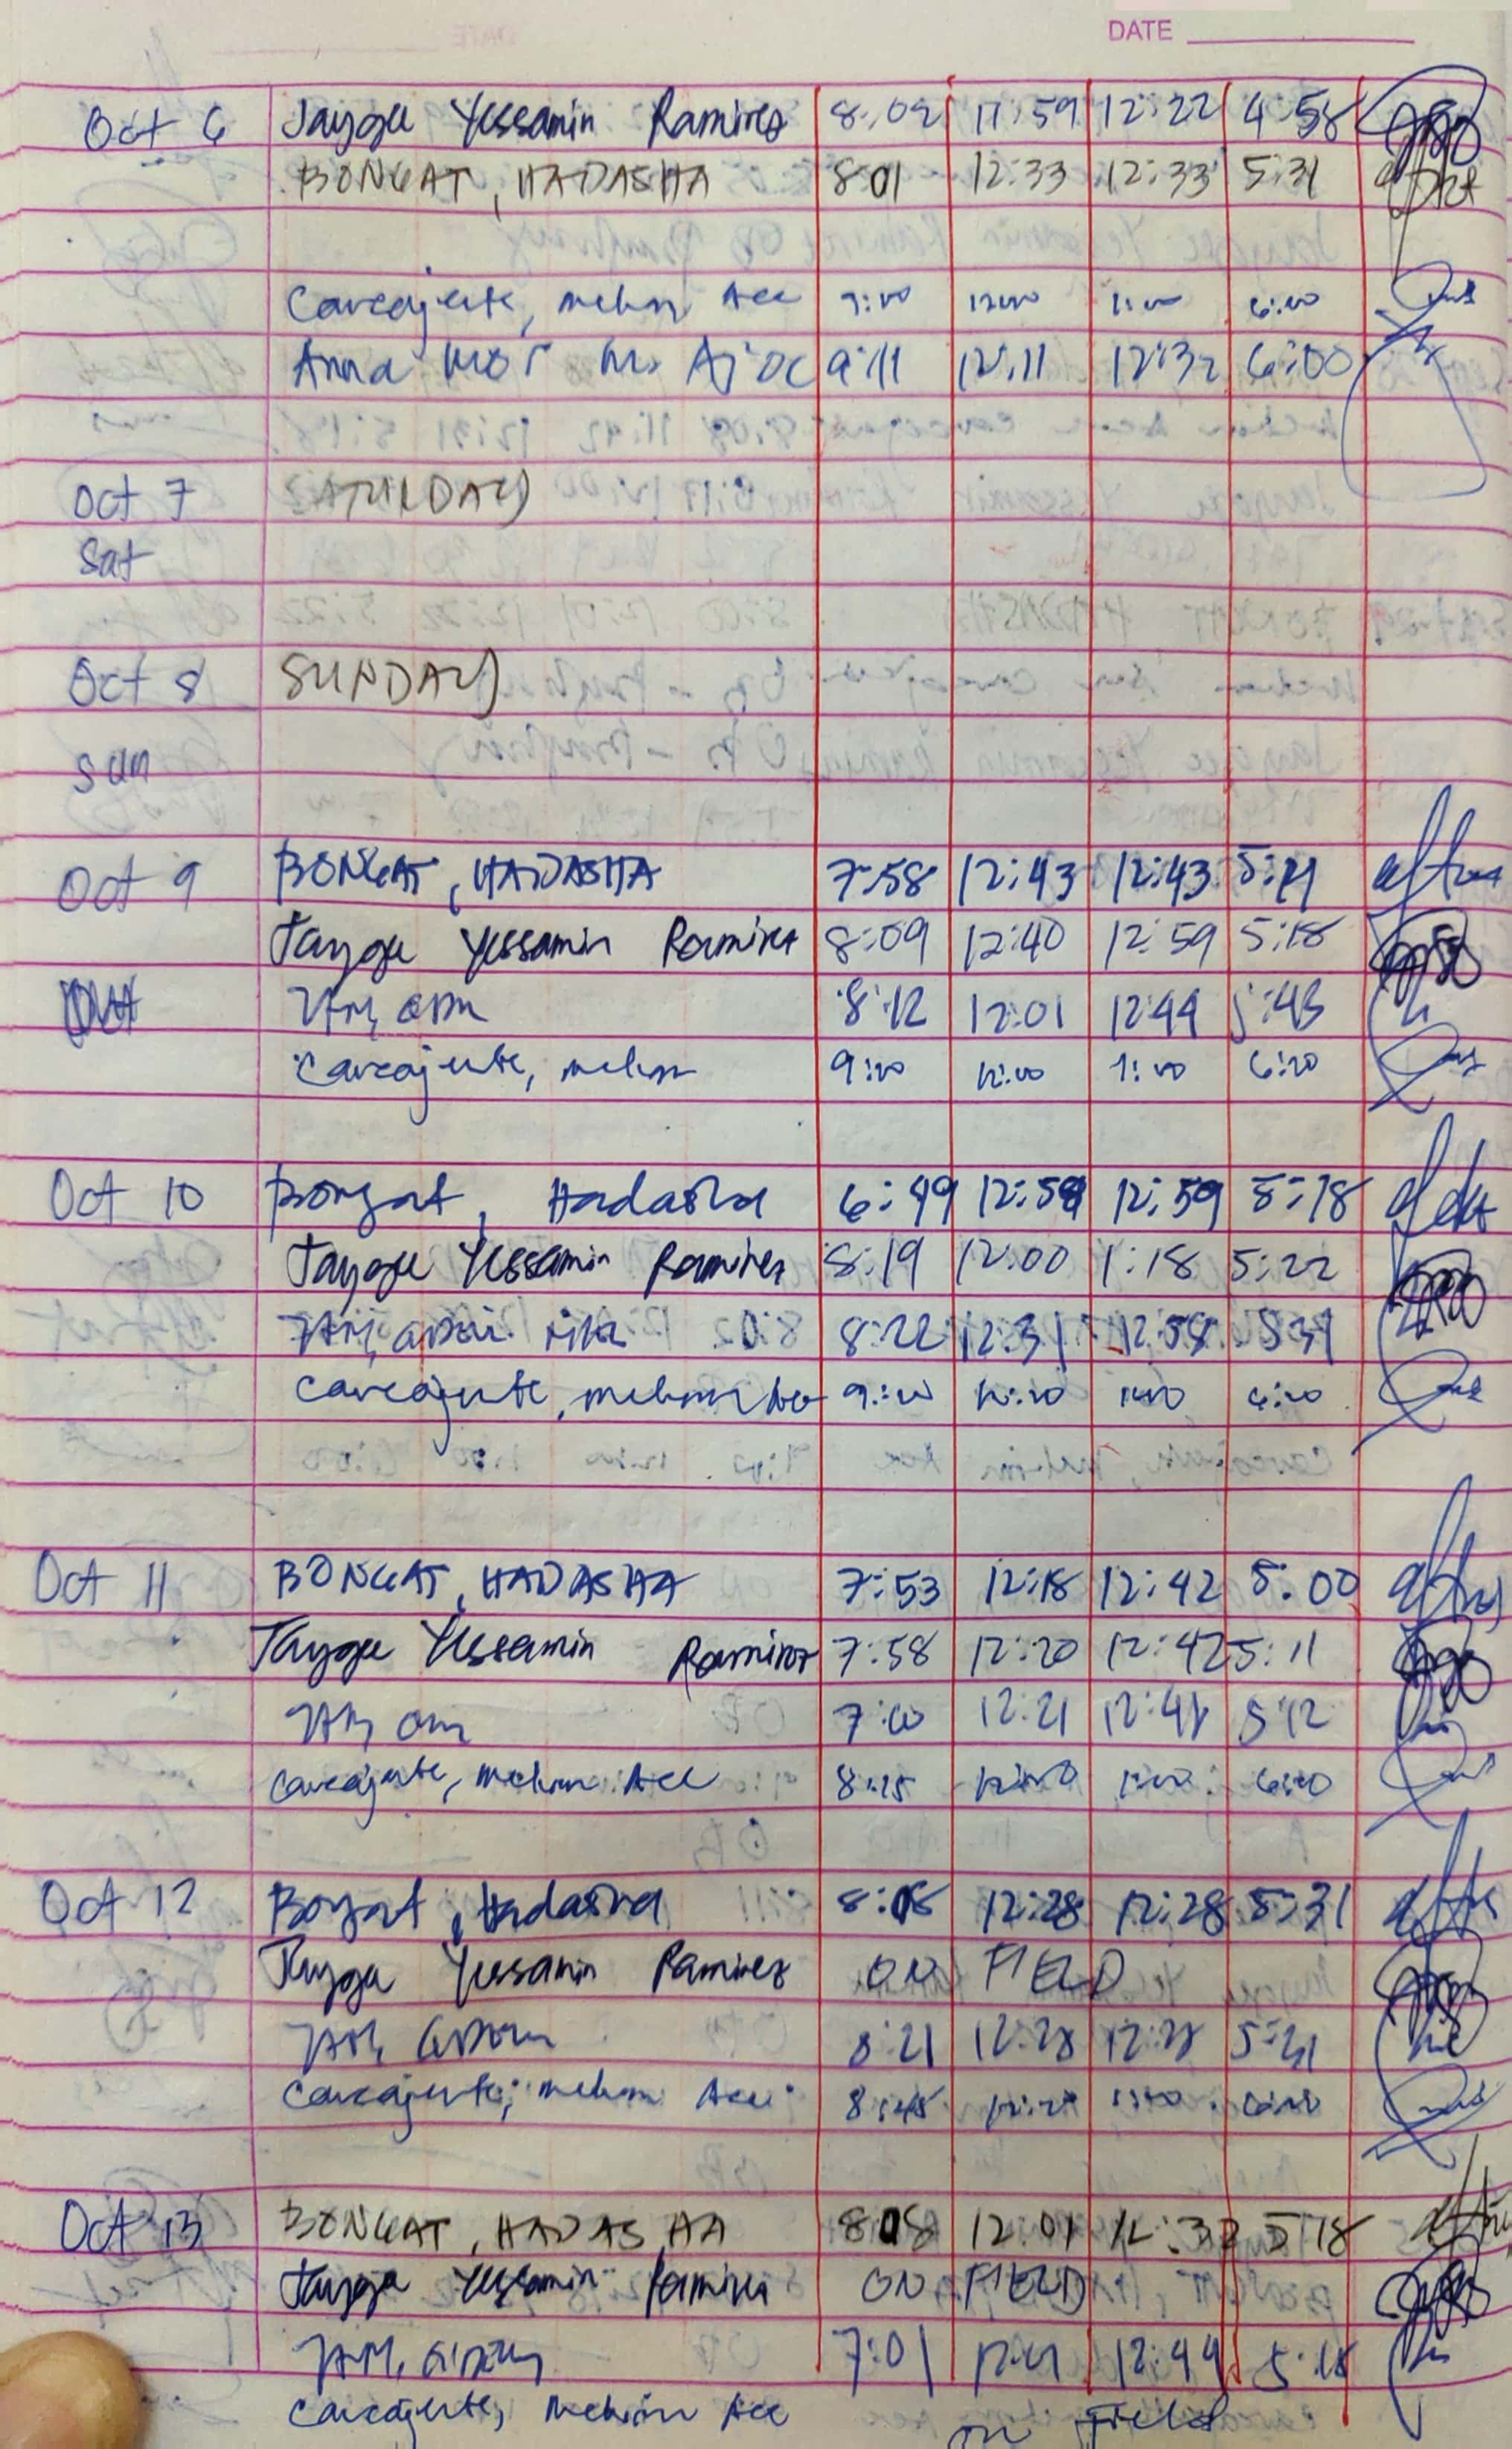 DATE
Oct 6 Jaygee Yessamin Ramirez 8:02 11:59 12:22 4:58
BONGAT, HADASHA 8:01 12:33 12:33 5:31
Carcajente, Melvin Ace 9:00 12:00 1:00 6:00
Anna 9:11 12:11 12:32 6:00
Oct 7 SATURDAY
Sat
Oct 8 SUNDAY
Sun
Oct 9 BONGAT, HADASHA 7:58 12:43 12:43
Jaygee Yessamin Ramirez 8:09 12:40 12:59 5:18
8:12 12:01 12:44 5:43
Carcajente, Melvin 9:00 12:00 1:00 6:00
Oct 10 Bongat, Hadasha 6:49 12:59 12:59 5:18
Jaygee Yessamin Ramirez 8:19 12:00 1:18 5:22
8:22 12:31 12:58 5:31
Carcajente, Melvin Ace 9:00 12:00 1:00 6:00
Oct 11 BONGAT, HADASHA 7:53 12:18 12:42 5:00
Jaygee Yessamin Ramirez 7:58 12:20 12:42 5:11
12:21 5:12
Carcajente, Melvin Ace 8:15 12:00 1:00 6:00
Oct 12 Bongat, Hadasha 8:08 12:28 12:28 5:31
Jaygee Yessamin Ramirez ON FIELD
8:21 12:28 12:28 5:31
Carcajente, Melvin Ace 8:45 12:00 1:00 6:00
Oct 13 BONGAT, HADASHA 8:08 12:01 12:32 5:18
Jaygee Yessamin Ramirez ON FIELD
7:01 12:44 5:18
Carcajente, Melvin Ace on Field